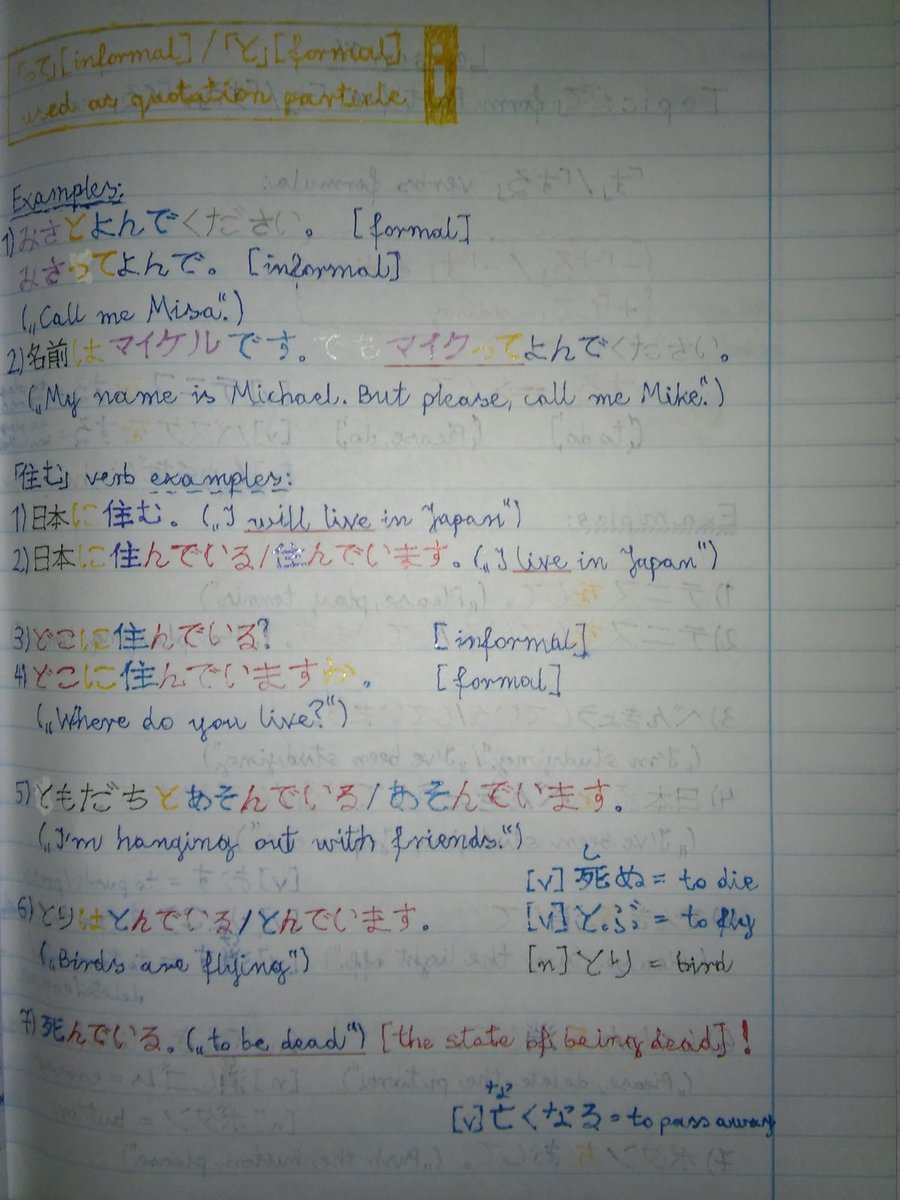 「って」[informal] / 「と」[formal]
used as quotation particle
Examples:
1) みさとよんでください。 [formal]
みさってよんで。 [informal]
(„Call me Misa".)
2) 名前はマイケルです。でもマイクってよんでください。
(„My name is Michael. But please, call me Mike".)
「住む」 verb examples:
1) 日本に住む。 („I will live in Japan")
2) 日本に住んでいる/住んでいます。 („I live in Japan")
3) どこに住んでいる? [informal]
4) どこに住んでいますか。 [formal]
(„Where do you live?")
5) ともだちとあそんでいる/あそんでいます。
(„I'm hanging out with friends.")
し
[v] 死ぬ = to die
6) とりはとんでいる/とんでいます。 [v] とぶ = to fly
(„Birds are flying") [n] とり = bird
7) 死んでいる。 („to be dead") [the state of being dead] !
な
[v] 亡くなる = to pass away